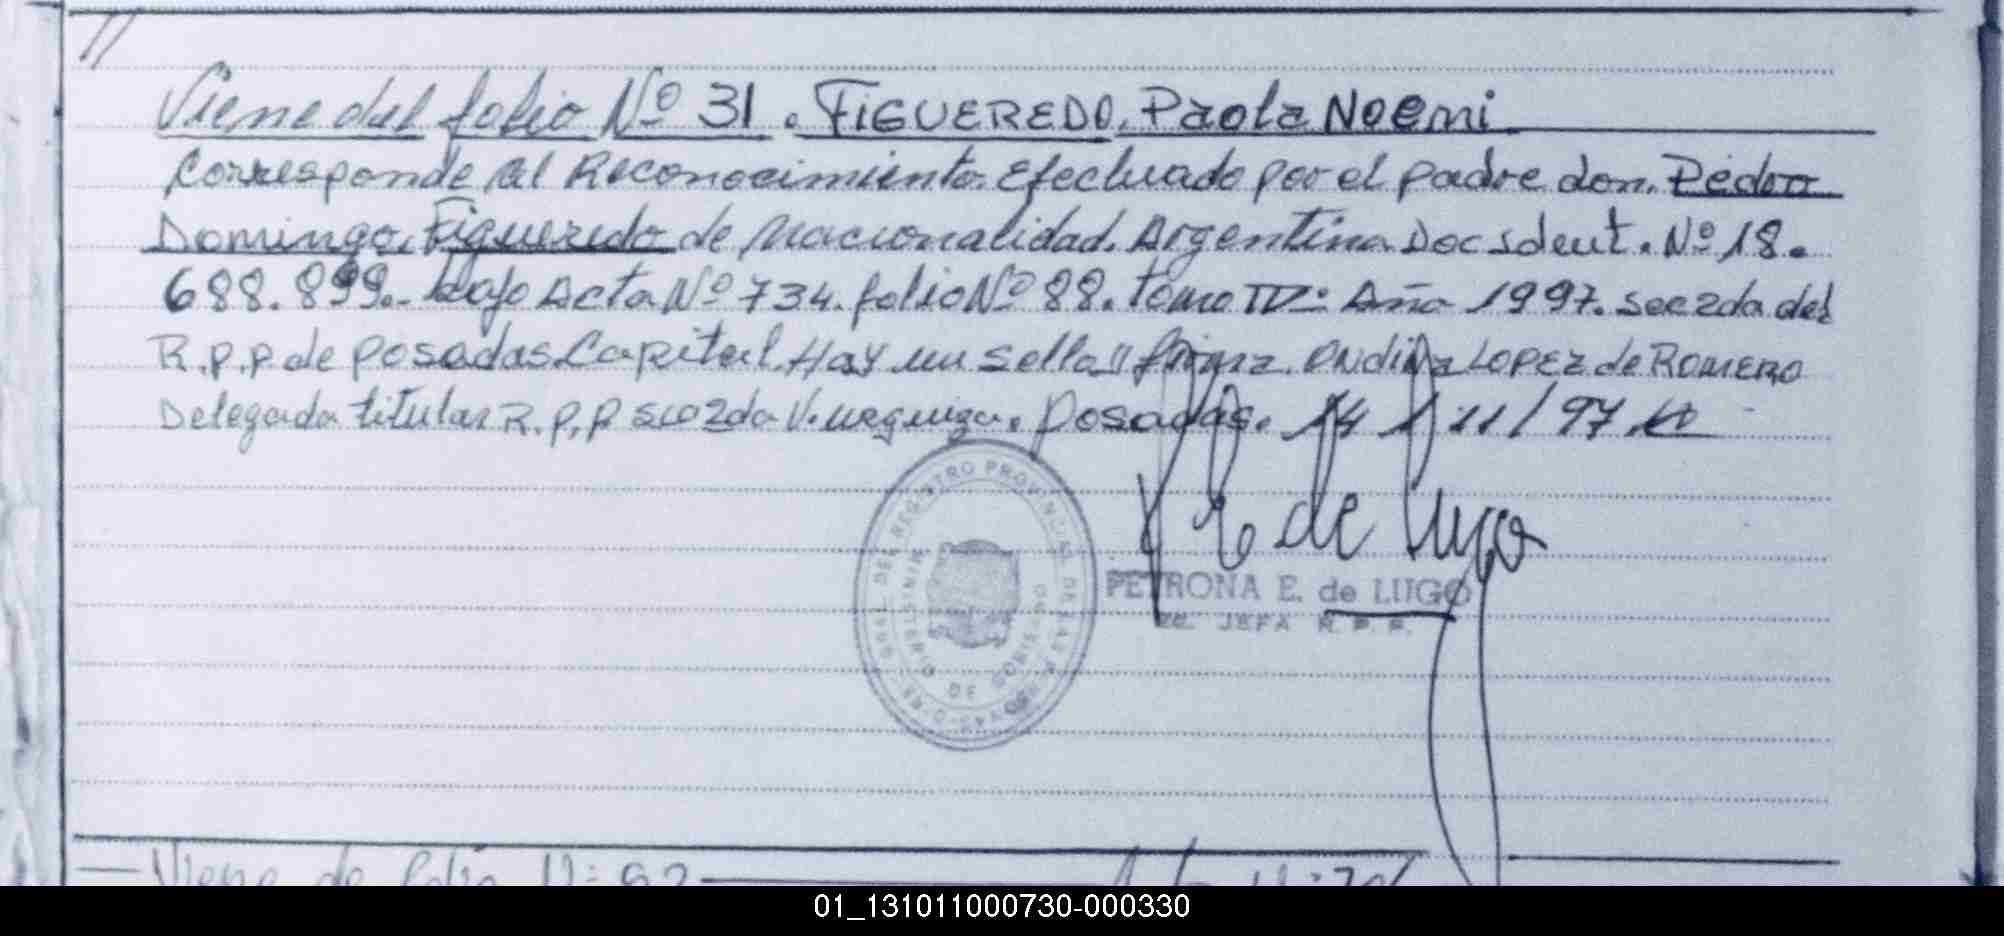 Viene del folio Nº 31. FIGUEREDO, Paola Noemi
Corresponde al Reconocimiento Efectuado por el padre don. Pedro
Domingo, Figueredo de Nacionalidad. Argentina Doc Ident. Nº 18.
688.899.- bajo Acta Nº 734. folio Nº 88. tomo IV: Año 1997. Sec 2da del
R.P.P de Posadas Capital. Hay un sello // firma. ONdina LOPEZ de ROMERO
Delegada titular R.P.P Sec 2da V. Urquiza. Posadas. 14 / 11 / 97.
de Lugo
DEL REGISTRO PROVINCIAL DE LAS P
MISIONES
PETRONA E. de LUGO
JEFA R. P. P.
Viene de folio Nº 82
01_131011000730-000330